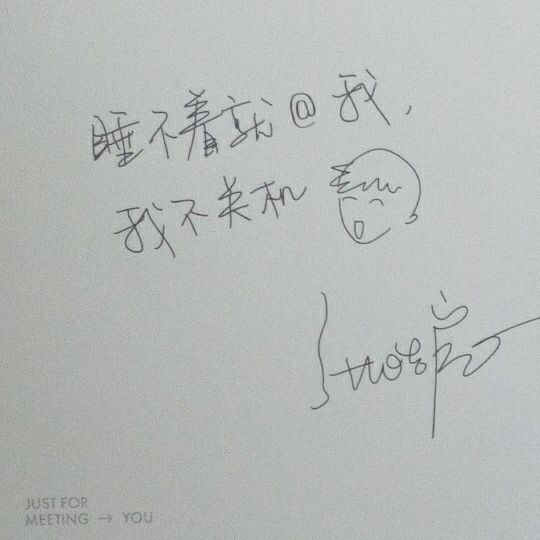 睡不着就@我,
我不关机
JUST FOR
MEETING → YOU